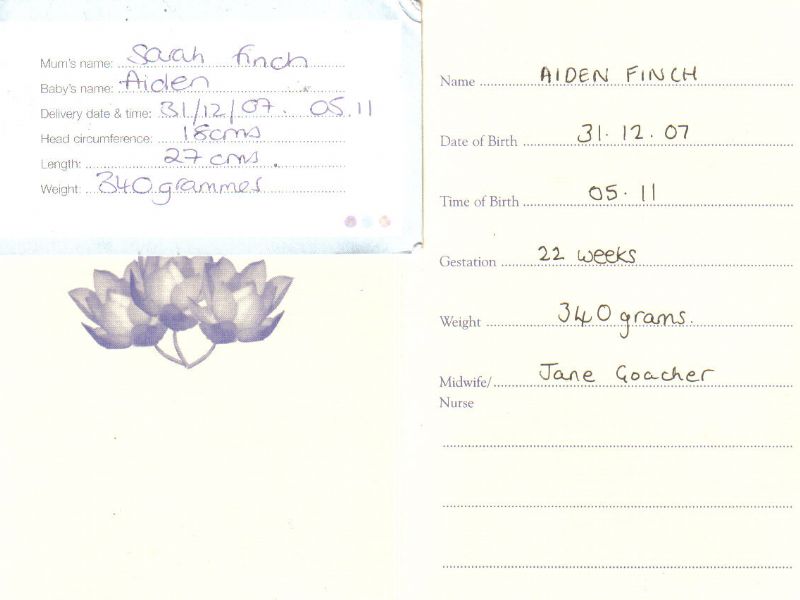 Mum's name: Sarah Finch
Baby's name: Aiden
Delivery date & time: 31/12/07. 05.11
Head circumference: 18cms
Length: 27 cms.
Weight: 340 grammes
Name AIDEN FINCH
Date of Birth 31.12.07
Time of Birth 05.11
Gestation 22 weeks
Weight 340 grams.
Midwife/ Jane Goacher
Nurse